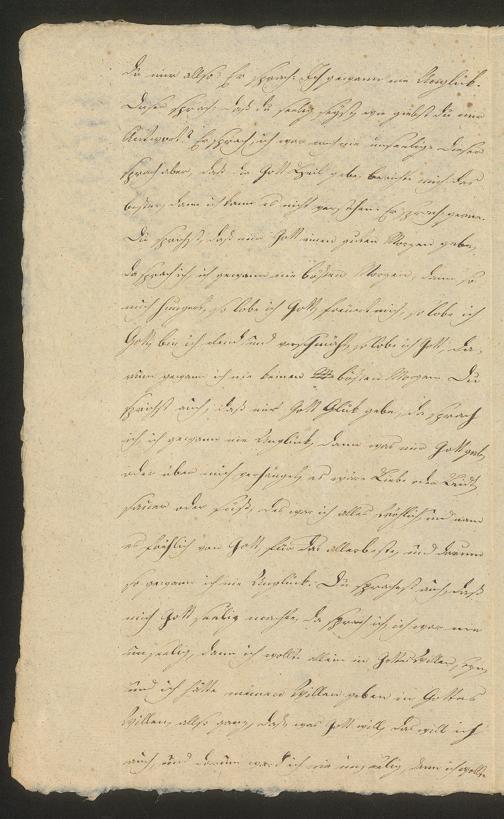 du mir allso? Er sprach: Ich gewann nie Unglück.
Dieser sprach: daß du seelig seyst, wie giebst du mir
Antwort? Er sprach, ich war noch nie unseelig. Dieser
sprach aber, daß dir Gott Heil gebe, berichte mich das
besser, dann ich kann es nicht verstehen. Er sprach gerne.
Du sprichst, daß mir Gott einen guten Morgen gebe,
da sprach ich, ich gewann nie bößen Morgen, dann so
mich hungert, so lobe ich Gott, frieret mich, so lobe ich
Gott, bin ich elend und verschmäht, so lobe ich Gott, Da-
rum gewann ich nie keinen bößen Morgen. Du
sprichst auch, daß mir Gott Glück gebe, da sprach
ich, ich gewann nie Unglück, dann was mir Gott gab,
oder über mich verhänget, es wäre Liebe oder Leid,
sauer oder süß, des war ich alles fröhlich und nam
es fröhlich von Gott für das allerbeste, und darum
so gewann ich nie Unglück. Du sprachest auch, daß
mich Gott seelig machte, da sprach ich, ich war nie
unseelig, dann ich wollte allein in Gottes Willen seyn,
und ich hatte meinen Willen geben in Gottes
Willen, allso ganz, daß was Gott will, das will ich
auch, und darum ward ich nie unseelig, dann ich wollte